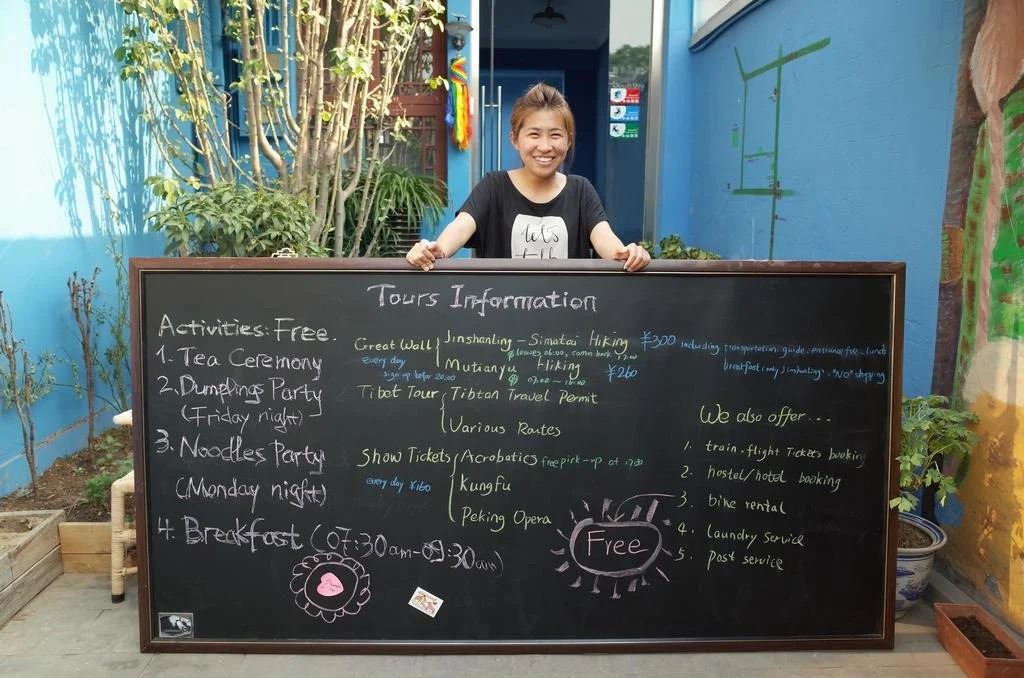 let's
Tours Information
Activities: Free.
1. Tea Ceremony
2. Dumplings Party
(Friday night)
3. Noodles Party
(Monday night)
4. Breakfast (07:30am-09:30am)
Great Wall
every day
sign up befor 20:00
Jinshanling - Simatai Hiking ¥300 including transportation, guide, entrance fee, lunch
leaves 06:00, comm back
breakfast (only Jinshanling), "NO" shipping
Mutianyu Hiking ¥260
07:00 ~ 16:00
Tibet Tour
Tibtan Travel Permit
Various Routes
Show Tickets
every day ¥160
Acrobatics free pick-up at 17:30
Kungfu
Peking Opera
We also offer...
1. train, flight Tickets booking
2. hostel/hotel booking
3. bike rental
4. laundry service
5. post service
Free